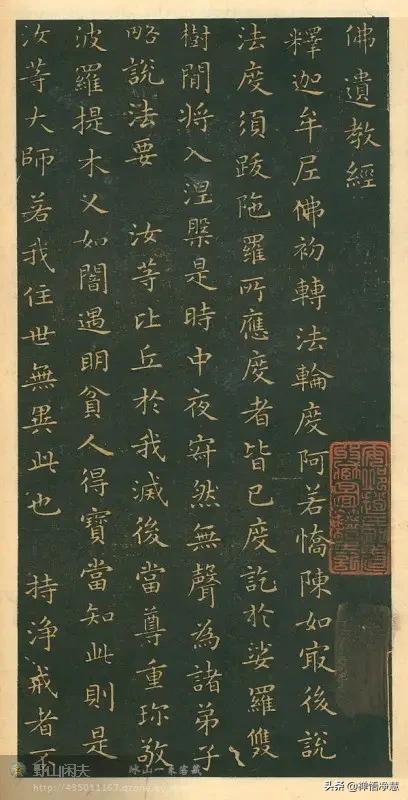 佛遺教經
釋迦牟尼佛初轉法輪度阿若憍陳如㝡後說
法度須跋陁羅所應度者皆已度訖於娑羅雙
樹間將入涅槃是時中夜寂然無聲為諸弟子
略說法要 汝等比丘於我滅後當尊重珎敬
波羅提木叉如闇遇明貧人得寶當知此則是
汝等大師若我住世無異此也 持淨戒者不
野山闲夫
头条 @禅悟净慧